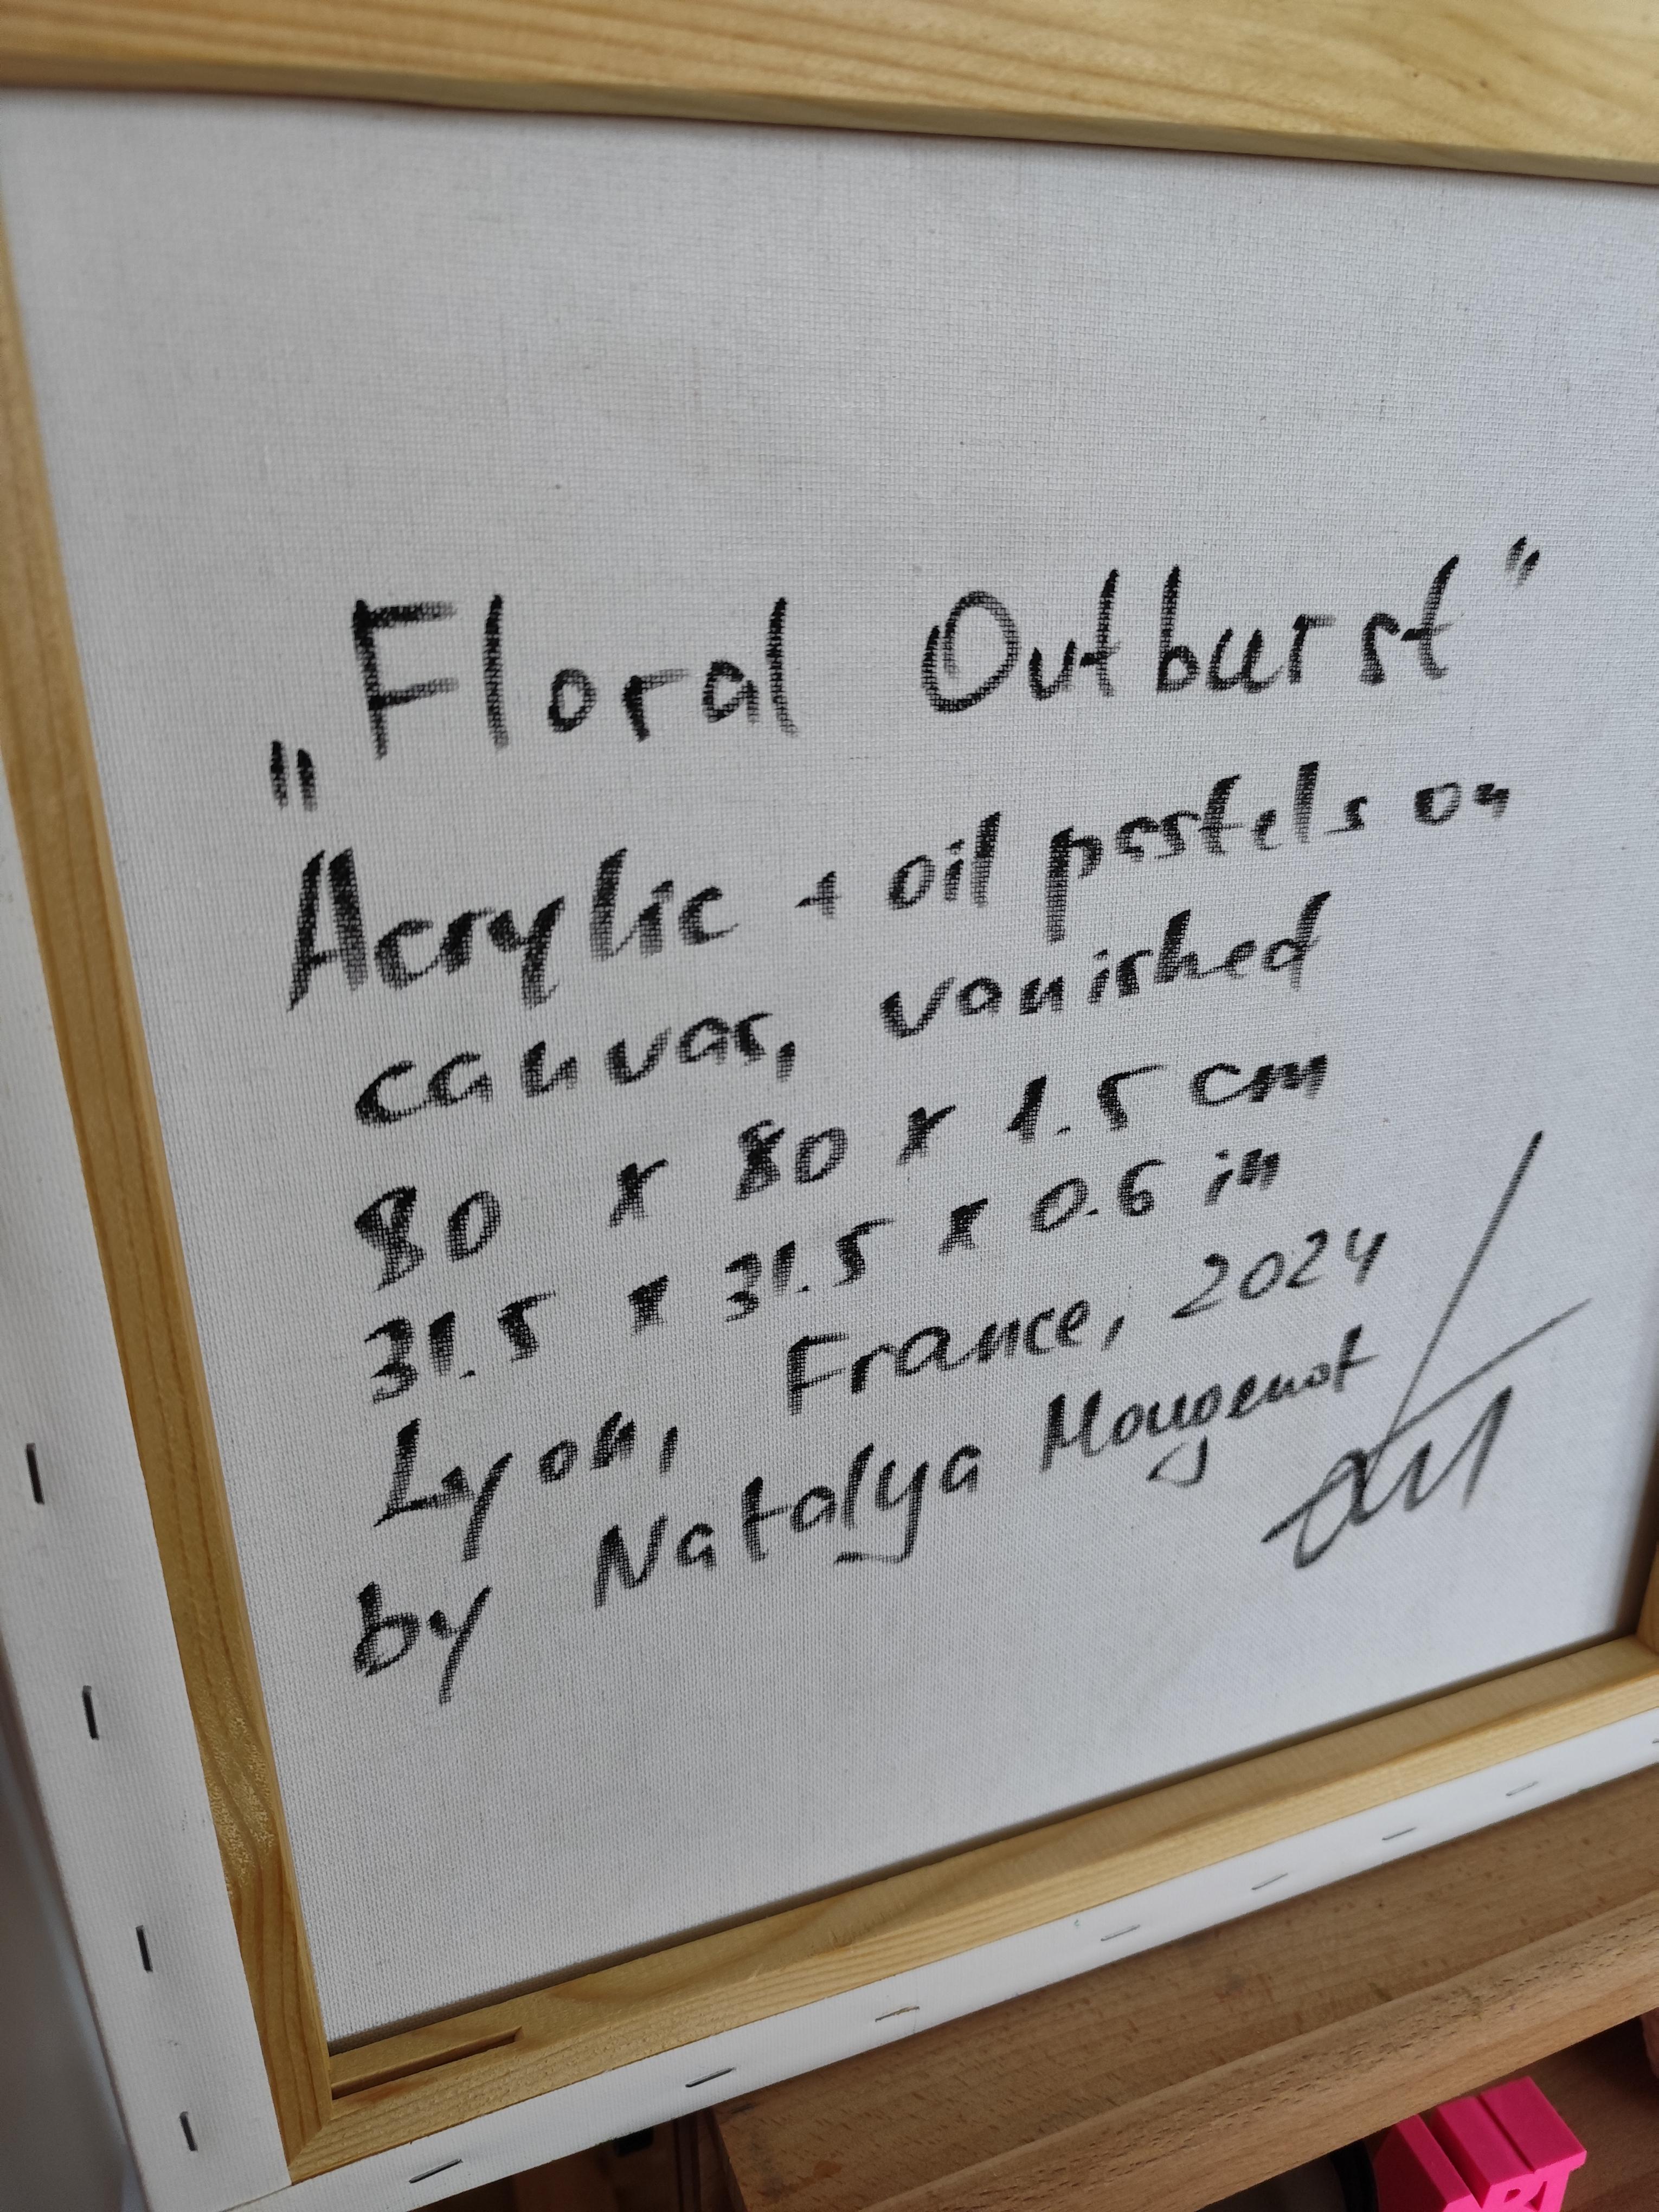 „Floral Outburst"
Acrylic + oil pastels on
canvas, vanished
80 x 80 x 1.5 cm
31.5 x 31.5 x 0.6 in
Lyon, France, 2024
by Natalya Mougenot